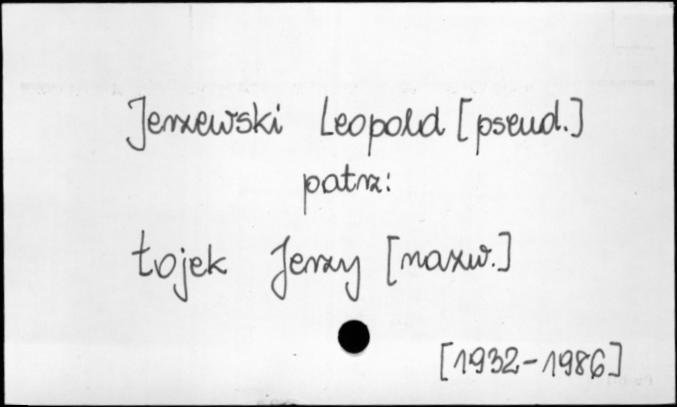 Jerzewski Leopold [pseud.]
patrz:
Łojek Jerzy [nazw.]
[1932-1986]